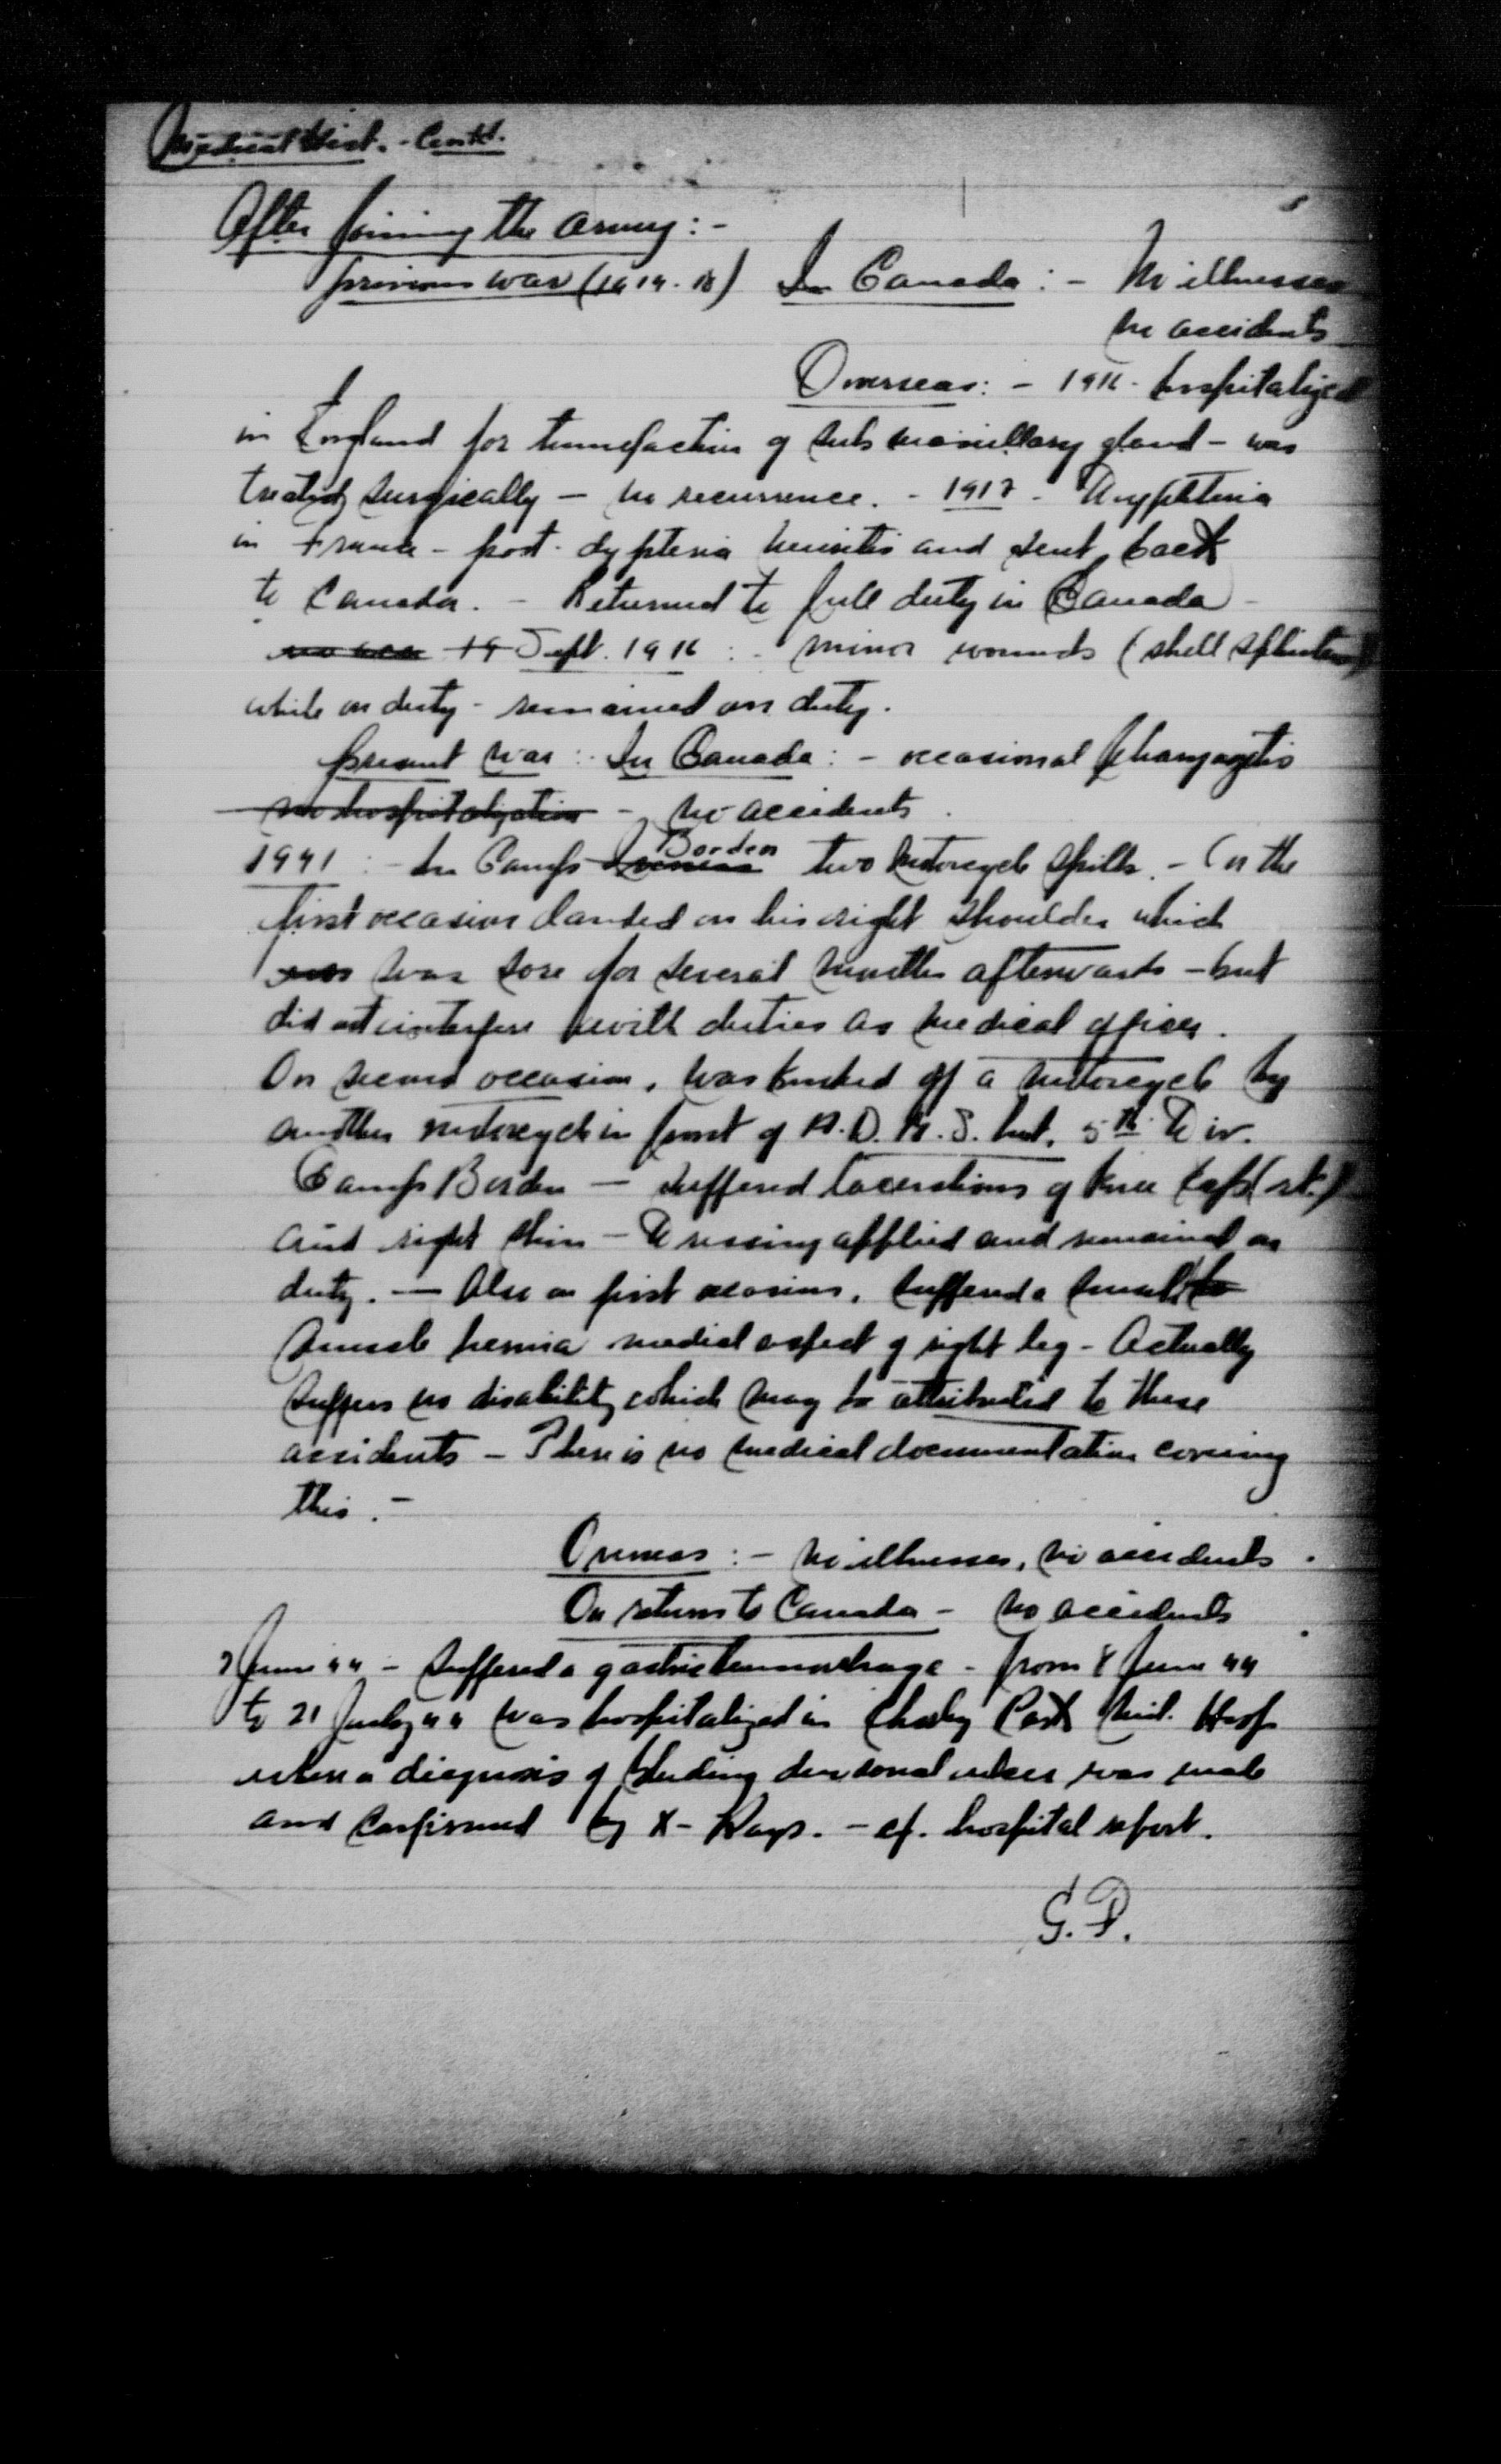 Medical Hist. - Contd.
After joining the Army: -
previous war (1914-18) In Canada: - No illnesses
no accidents
Overseas: - 1916 - hospitalized
in England for tumefaction of sub maxillary gland - was
treated surgically - no recurrence. - 1917 - Dyphteria
in France - post-dypteria neuritis and sent back
to Canada. - Returned to full duty in Canada -
19 Sept. 1916: - minor wounds (shell splinters)
while on duty - remained on duty.
present war: In Canada: - occasional pharyngitis
no hospitalization - no accidents.
1941: - In Camp Borden two motorcycle spills. - On the
first occasion landed on his right shoulder which
was was sore for several months afterwards - but
did not interfere with duties as medical officer.
On second occasion, was knocked off a motorcycle by
another motorcycle in front of A.D.M.S. hut, 5th Div.
Camp Borden - suffered lacerations of knee cap (rt.)
and right shin - Dressing applied and remained on
duty. - Also on first occasion, suffered a small
muscle hernia medial aspect of right leg - Actually
suffers no disability which may be attributed to these
accidents - There is no medical documentation covering
this. -
Overseas: - no illnesses, no accidents.
On return to Canada - no accidents
7 June 44 - suffered a gastric hemorrhage - from 8 June 44
to 21 July 44 was hospitalized in Mil. Hosp
when a diagnosis of bleeding duodenal ulcer was made
and confirmed by X-Rays. - cf. hospital report.
G.P.